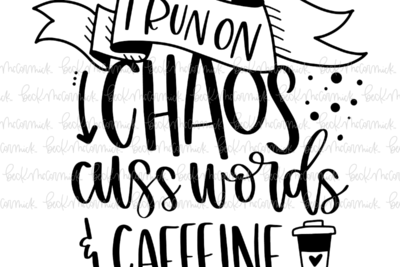 I RUN ON
CHAOS
cuss words
& CAFFEINE